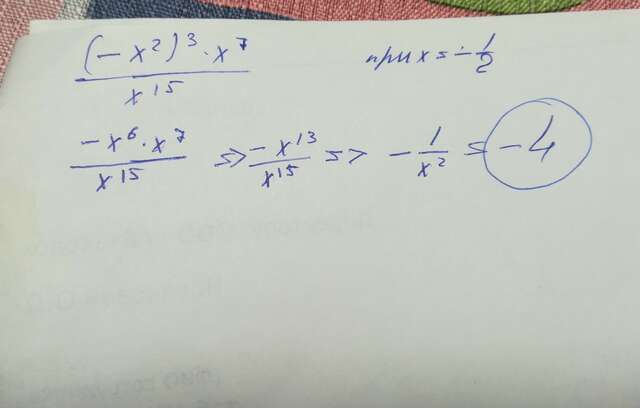 (-x²)³·x⁷ / x¹⁵ при x=-1/2
-x⁶·x⁷ / x¹⁵ => -x¹³ / x¹⁵ => -1/x² = -4